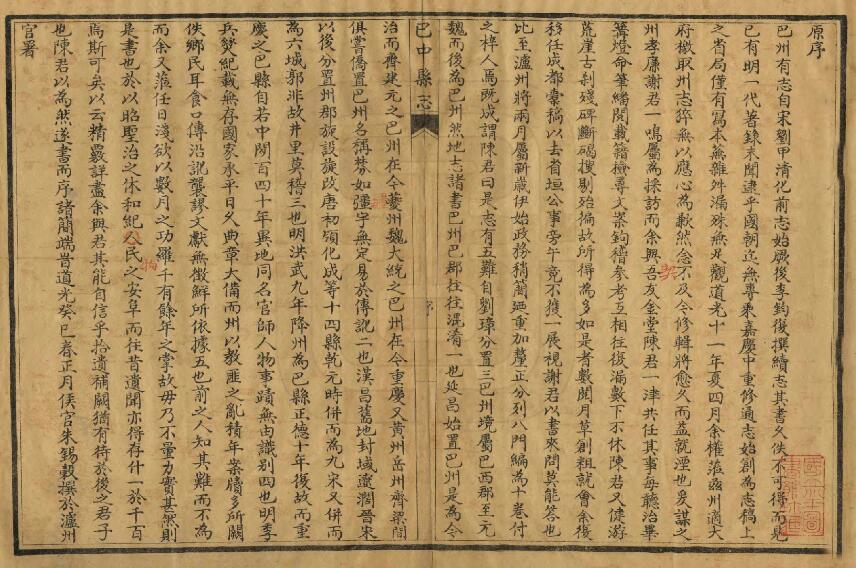 原序
巴州有志自宋劉甲清化前志始厥後李鈞復撰續志其書久佚不可得而見
已有明一代著錄未聞逮乎國朝迄無專乘嘉慶中重修通志始創為志稿上
之省局僅有寫本蕪雜舛漏殊無足觀道光十一年夏四月余權蒞茲州適大
府檄取州志猝無以應心為歉然念不及今修輯將愈久而益就湮也爰謀之
州孝廉謝君一鳴屬為採訪而余與吾友金堂陳君一津共任其事每聽治畢
篝燈命筆繙閱載籍檢尋文案鉤稽參考互相往復漏數下不休陳君又健游
荒崖古刹殘碑斷碣搜剔殆徧故所得為多如是者數閱月草創粗就會余復
移任成都橐稿以去省垣公事旁午竟不獲一展視謝君以書來問莫能答也
比至瀘州將兩月屬新歲伊始政務稍簡迺重加釐正分列八門編為十卷付
之梓人焉既成謂陳君曰是志有五難自劉璋分置三巴州境屬巴西郡至元
魏而後為巴州然地志諸書巴州巴郡往往混淆一也延昌始置巴州是為今
巴中縣志
序
治而齊建元之巴州在今夔州魏大統之巴州在今重慶又黃州岳州齊梁間
俱嘗僑置巴州名稱棼如疆宇無定易於傳訛二也漢昌舊地封域遼濶晉宋
以後分置州郡旋設旋改唐初領化成等十四縣乾元時併而為九宋又併而
為六城郭非故井里莫稽三也明洪武九年降州為巴縣正德十年復故而重
慶之巴縣自若中閒百四十年異地同名官師人物事蹟無由識别四也明季
兵燹紀載無存國家承平日久典章大備而州以教匪之亂積年案牘多所闕
佚鄉民耳食口傳沿訛襲謬文獻無徵鮮所依據五也前之人知其難而不為
而余又蒞任日淺欲以數月之功雜千有餘年之掌故毋乃不量力實甚然則
是書也於以昭聖治之休和紀人民之安阜而往昔遺聞亦得存什一於千百
焉斯可矣以云精覈詳盡余與君其能自信乎拾遺補闕猶有待於後之君子
也陳君以為然遂書而序諸簡端旹道光癸巳春正月侯官朱錫穀撰於瀘州
官署